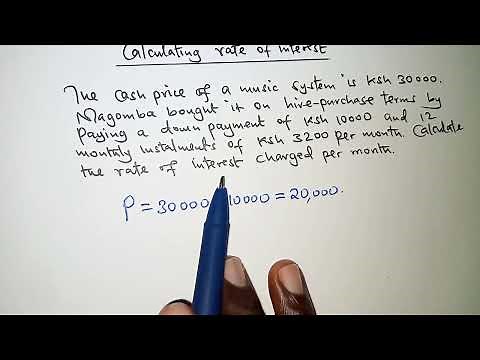 Calculating rate of interest
The cash price of a music system is Ksh 30000.
Magomba bought it on hire-purchase terms by
Paying a down payment of Ksh 10000 and 12
monthly instalments of Ksh 3200 per month. Calculate
the rate of interest charged per month.
P = 30000 10000 = 20,000.